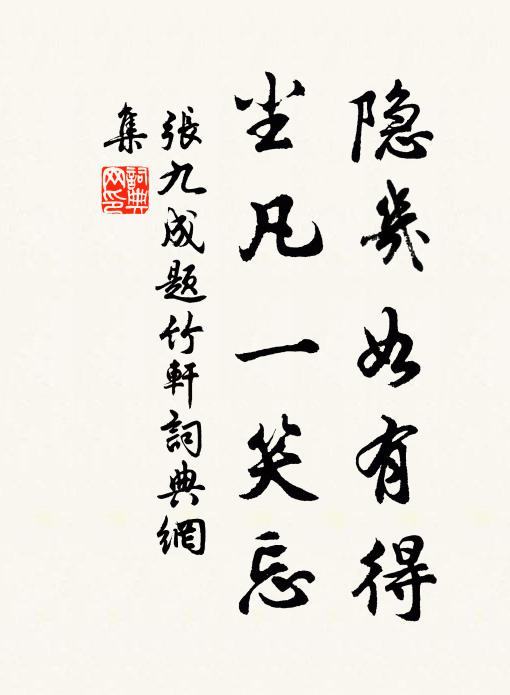 隐幾如有得
尘凡一笑忘
張九成題竹軒詞典網
集
詞典
网印